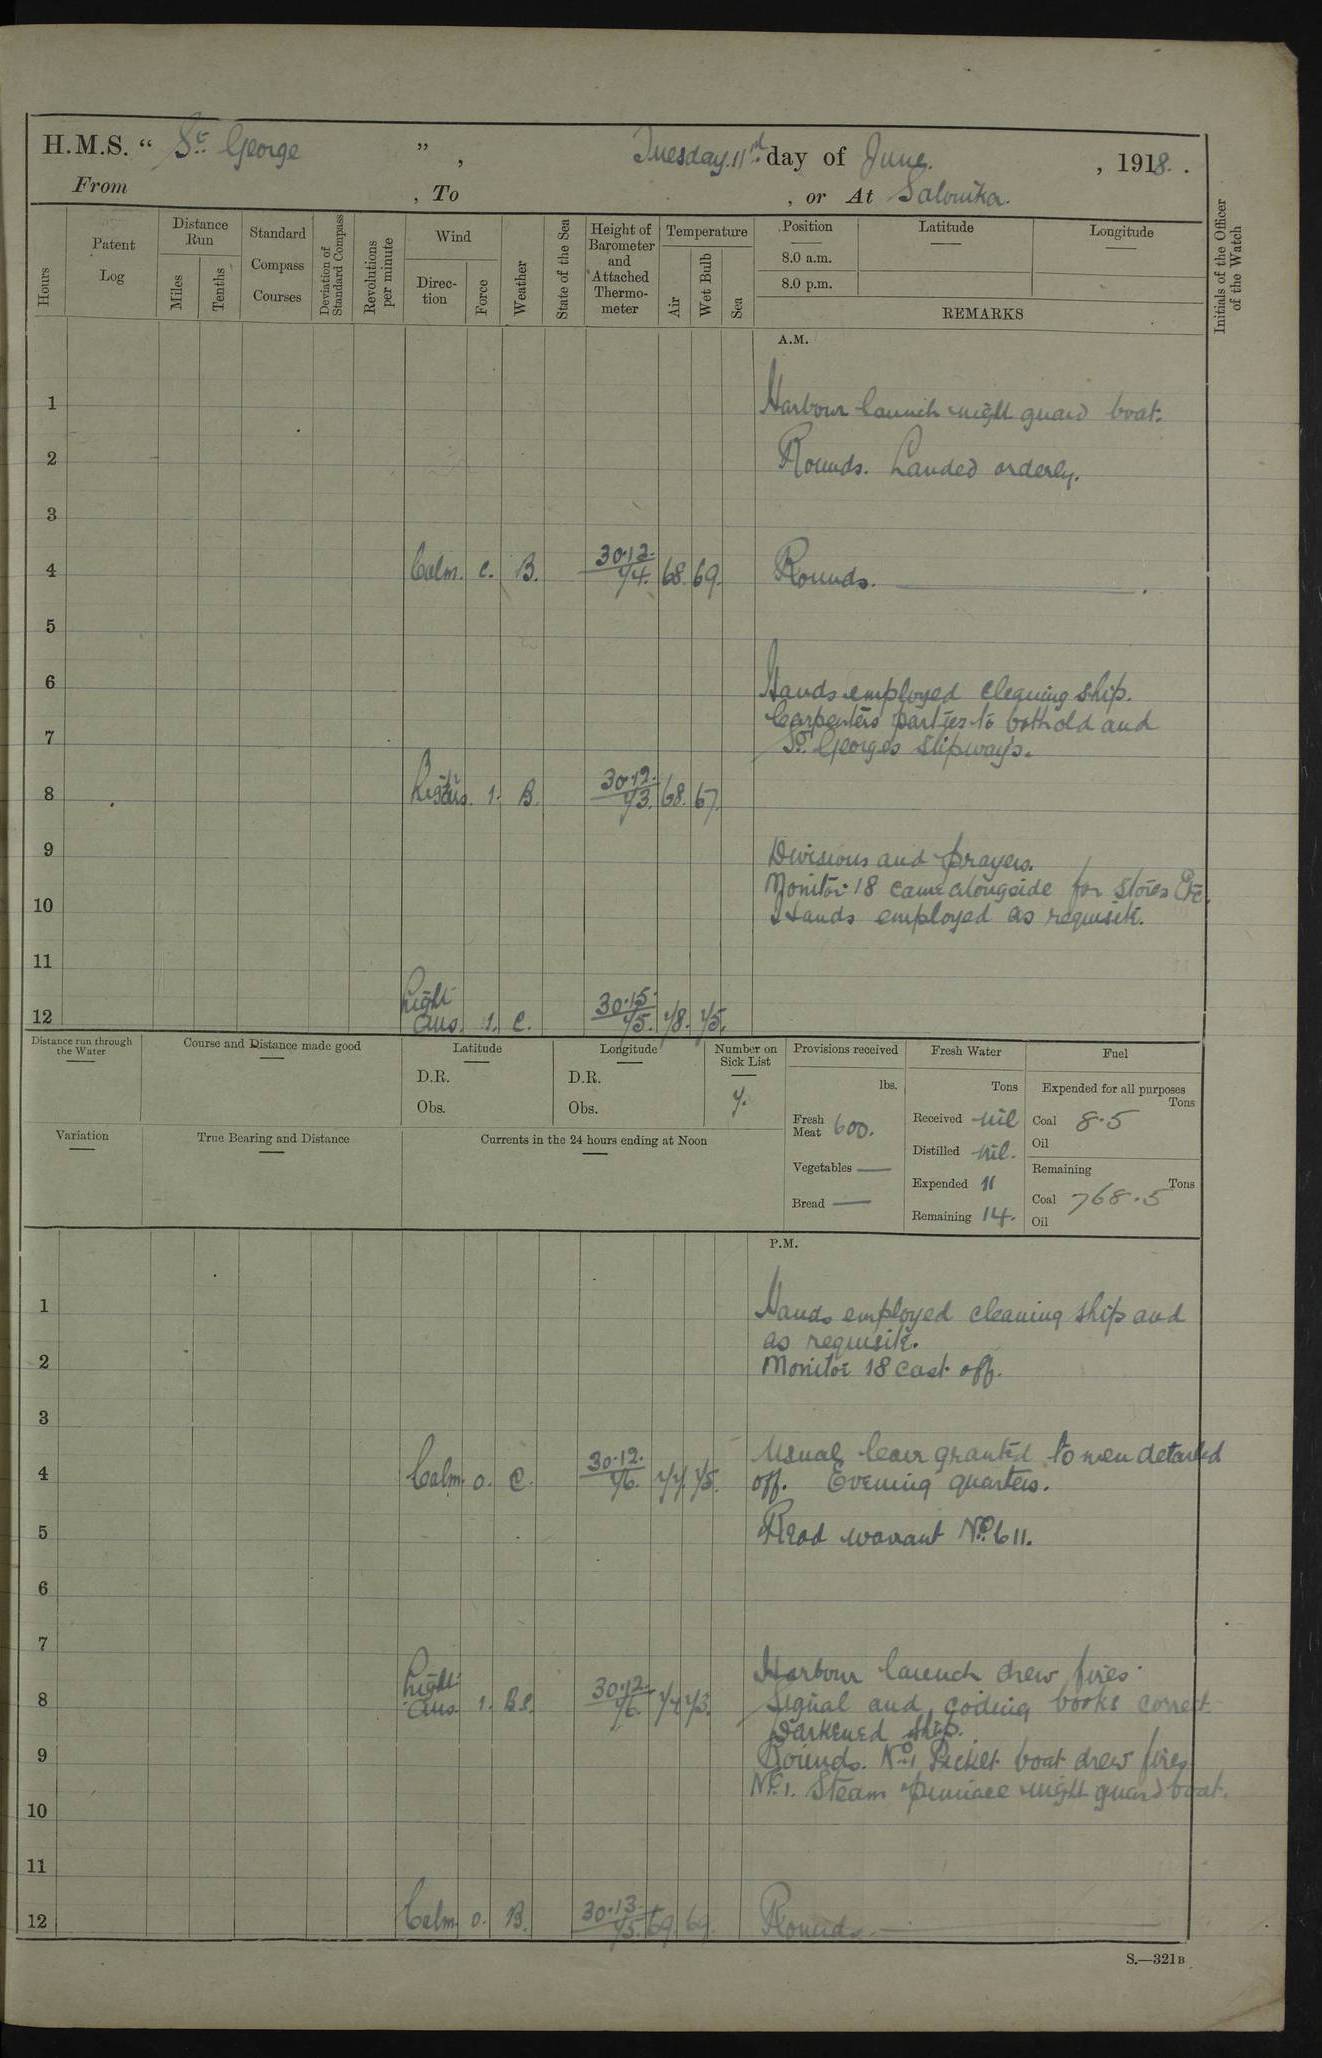 H.M.S. “ St. George ” , Tuesday 11 day of June. , 1918.
From , To , or At Salonika.
Hours
Patent Log
Distance Run
Miles
Tenths
Standard Compass Courses
Deviation of Standard Compass
Revolutions per minute
Wind
Direction
Force
Weather
State of the Sea
Height of Barometer and Attached Thermometer
Temperature
Air
Wet Bulb
Sea
Position
8.0 a.m.
8.0 p.m.
Latitude
Longitude
REMARKS
Initials of the Officer of the Watch
A.M.
1 Harbour launch night guard boat.
2 Rounds. Landed orderly.
3
4 Calm. c. B. 30.12. 74. 68. 69. Rounds.
5
6 Hands employed cleaning ship.
Carpenters parties to both old and
7 St. Georges Slipways.
8 Light airs. 1. B. 30.12. 73. 68. 67.
9 Divisions and prayers.
Monitor 18 came alongside for stores Etc.
10 Hands employed as requisite.
11
12 Light airs. 1. C. 30.15. 75. 78. 75.
Distance run through the Water
Course and Distance made good
Latitude
D.R.
Obs.
Longitude
D.R.
Obs.
Number on Sick List
7.
Provisions received
lbs.
Fresh Meat 600.
Vegetables —
Bread —
Fresh Water
Tons
Received nil
Distilled nil.
Expended 11
Remaining 14.
Fuel
Expended for all purposes
Tons
Coal 8.5
Oil
Remaining
Tons
Coal 768.5
Oil
Variation
True Bearing and Distance
Currents in the 24 hours ending at Noon
P.M.
1 Hands employed cleaning ship and
as requisite.
2 Monitor 18 cast off.
3
Usual leave granted to men detailed
4 Calm. o. C. 30.12. 76. 77. 75. off. Evening quarters.
5 Read warrant No. 611.
6
7
Harbour launch drew fires.
8 Light airs. 1. B.C. 30.12. 76. 74. 73. Signal and coding books correct.
Darkened ship.
9 Rounds. No. 1 Picket boat drew fires.
No. 1. Steam pinnace night guard boat.
10
11
12 Calm. o. B. 30.13. 75. 69. 69. Rounds.
S.—321B